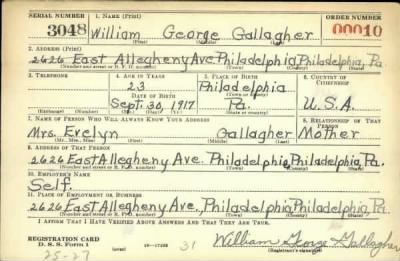 SERIAL NUMBER 1. NAME (Print) ORDER NUMBER
3048 William George Gallagher 00010
(First) (Middle) (Last)
2. ADDRESS (Print)
2626 East Allegheny Ave. Philadelphia, Philadelphia, Pa.
(Number and street or R. F. D. number) (Town) (County) (State)
3. TELEPHONE 4. AGE IN YEARS 5. PLACE OF BIRTH 6. COUNTRY OF CITIZENSHIP
23 Philadelphia
DATE OF BIRTH (Town or county)
Sept. 30, 1917 Pa. U.S.A.
(Exchange) (Number) (Mo.) (Day) (Yr.) (State or country)
7. NAME OF PERSON WHO WILL ALWAYS KNOW YOUR ADDRESS 8. RELATIONSHIP OF THAT PERSON
Mrs. Evelyn Gallagher Mother
(Mr., Mrs., Miss) (First) (Middle) (Last)
9. ADDRESS OF THAT PERSON
2626 East Allegheny Ave. Philadelphia, Philadelphia, Pa.
(Number and street or R. F. D. number) (Town) (County) (State)
10. EMPLOYER'S NAME
Self.
11. PLACE OF EMPLOYMENT OR BUSINESS
2626 East Allegheny Ave., Philadelphia, Philadelphia, Pa.
(Number and street or R. F. D. number) (Town) (County) (State)
I AFFIRM THAT I HAVE VERIFIED ABOVE ANSWERS AND THAT THEY ARE TRUE.
REGISTRATION CARD
D. S. S. Form 1 (over) 16-17105 31 William George Gallagher
25-27 (Registrant's signature)